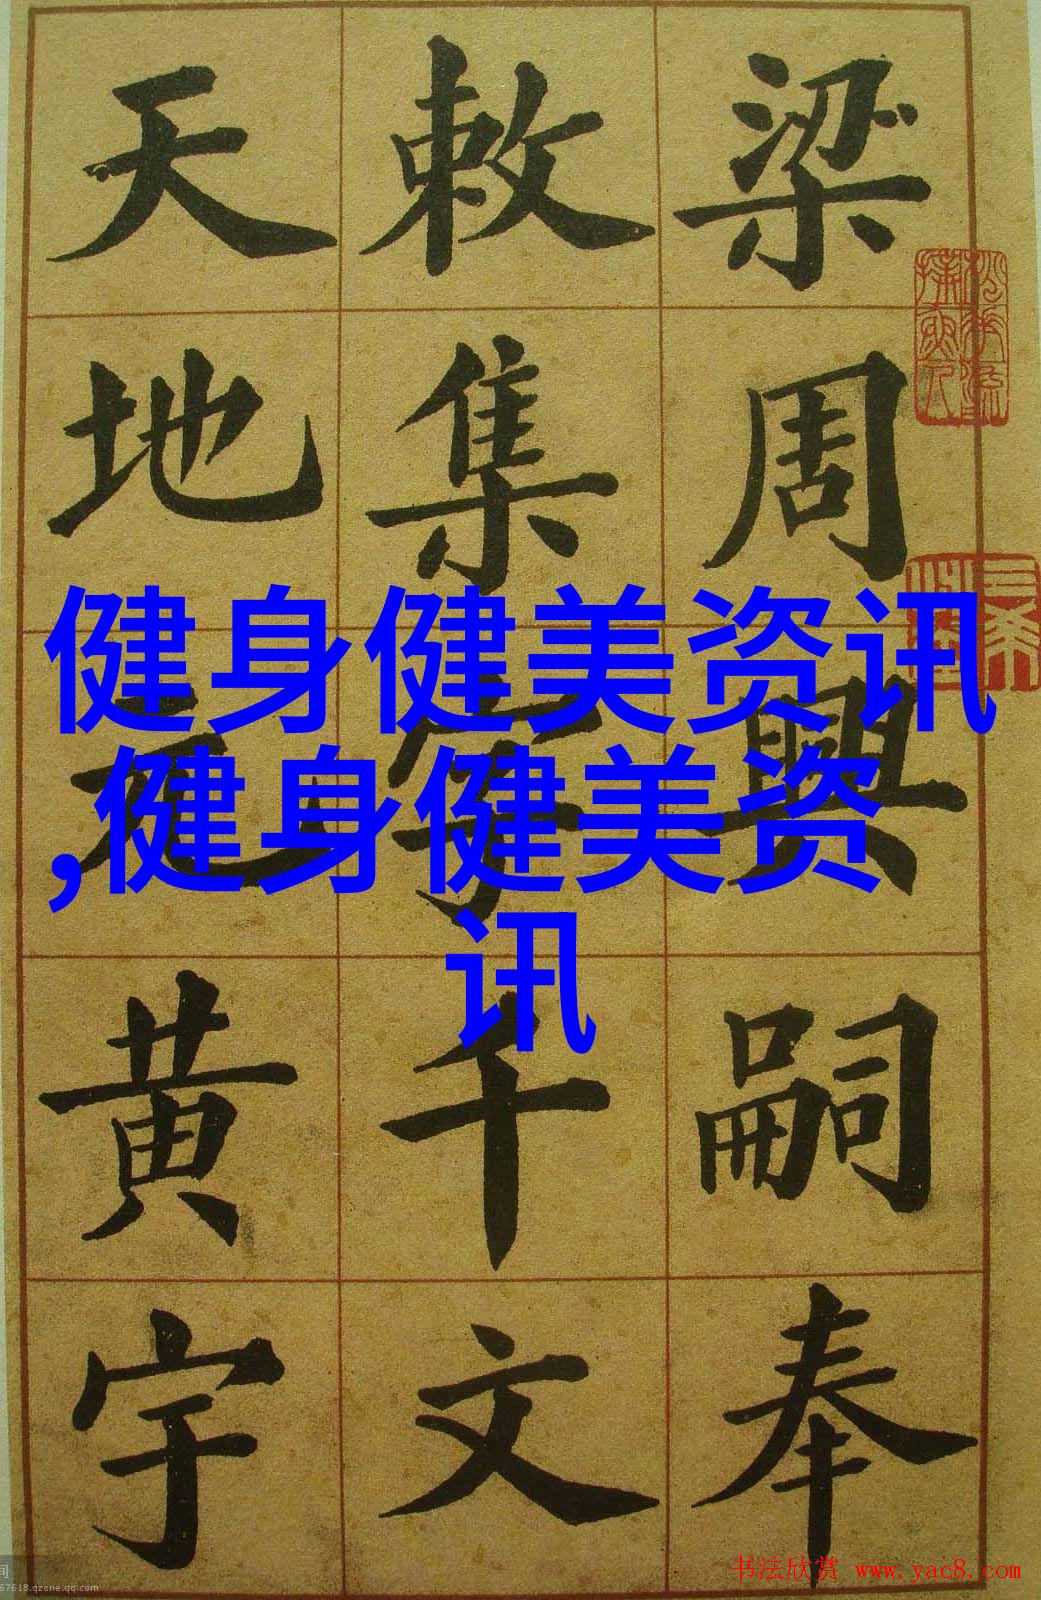 梁周興嗣奉
敕集字千文
天地玄黄宇
健身健美资讯
,健身健美资
讯
书法欣赏 www.yac8.com
间
67618.qzone.qq.com